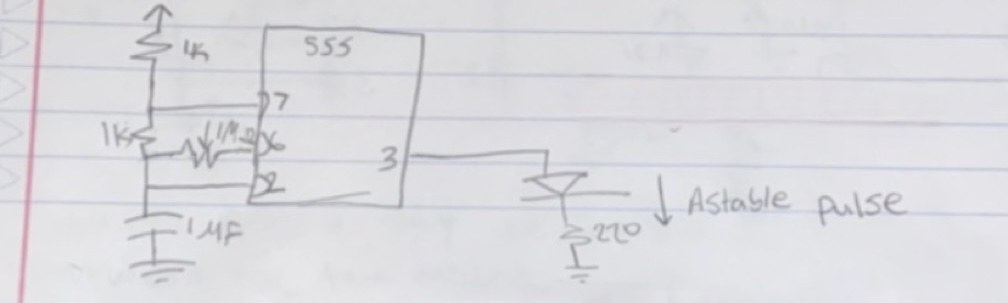 1K
555
7
1K
1M
6
3
2
1µF
220
Astable pulse